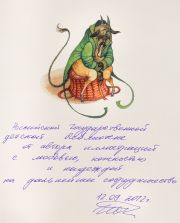 Российской Государственной
детской библиотеке
от автора иллюстраций
с любовью, нежностью
и надеждой
на дальнейшее сотрудничество
12.09.2012г.